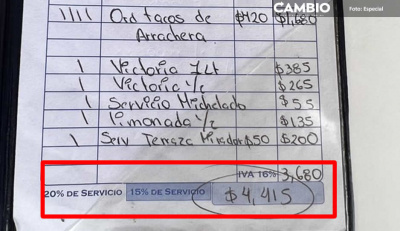 CAMBIO
Foto: Especial
1111 Ord tacos de $420 $1,680
Arrachera
1 Victoria 1Lt $385
1 Victoria 1/2 $265
1 Servicio Michelado $55
1 Limonada 1/2 $135
1 Serv Terraza Mirador $50 $200
IVA 16% 3,680
20% DE SERVICIO 15% DE SERVICIO $4,415